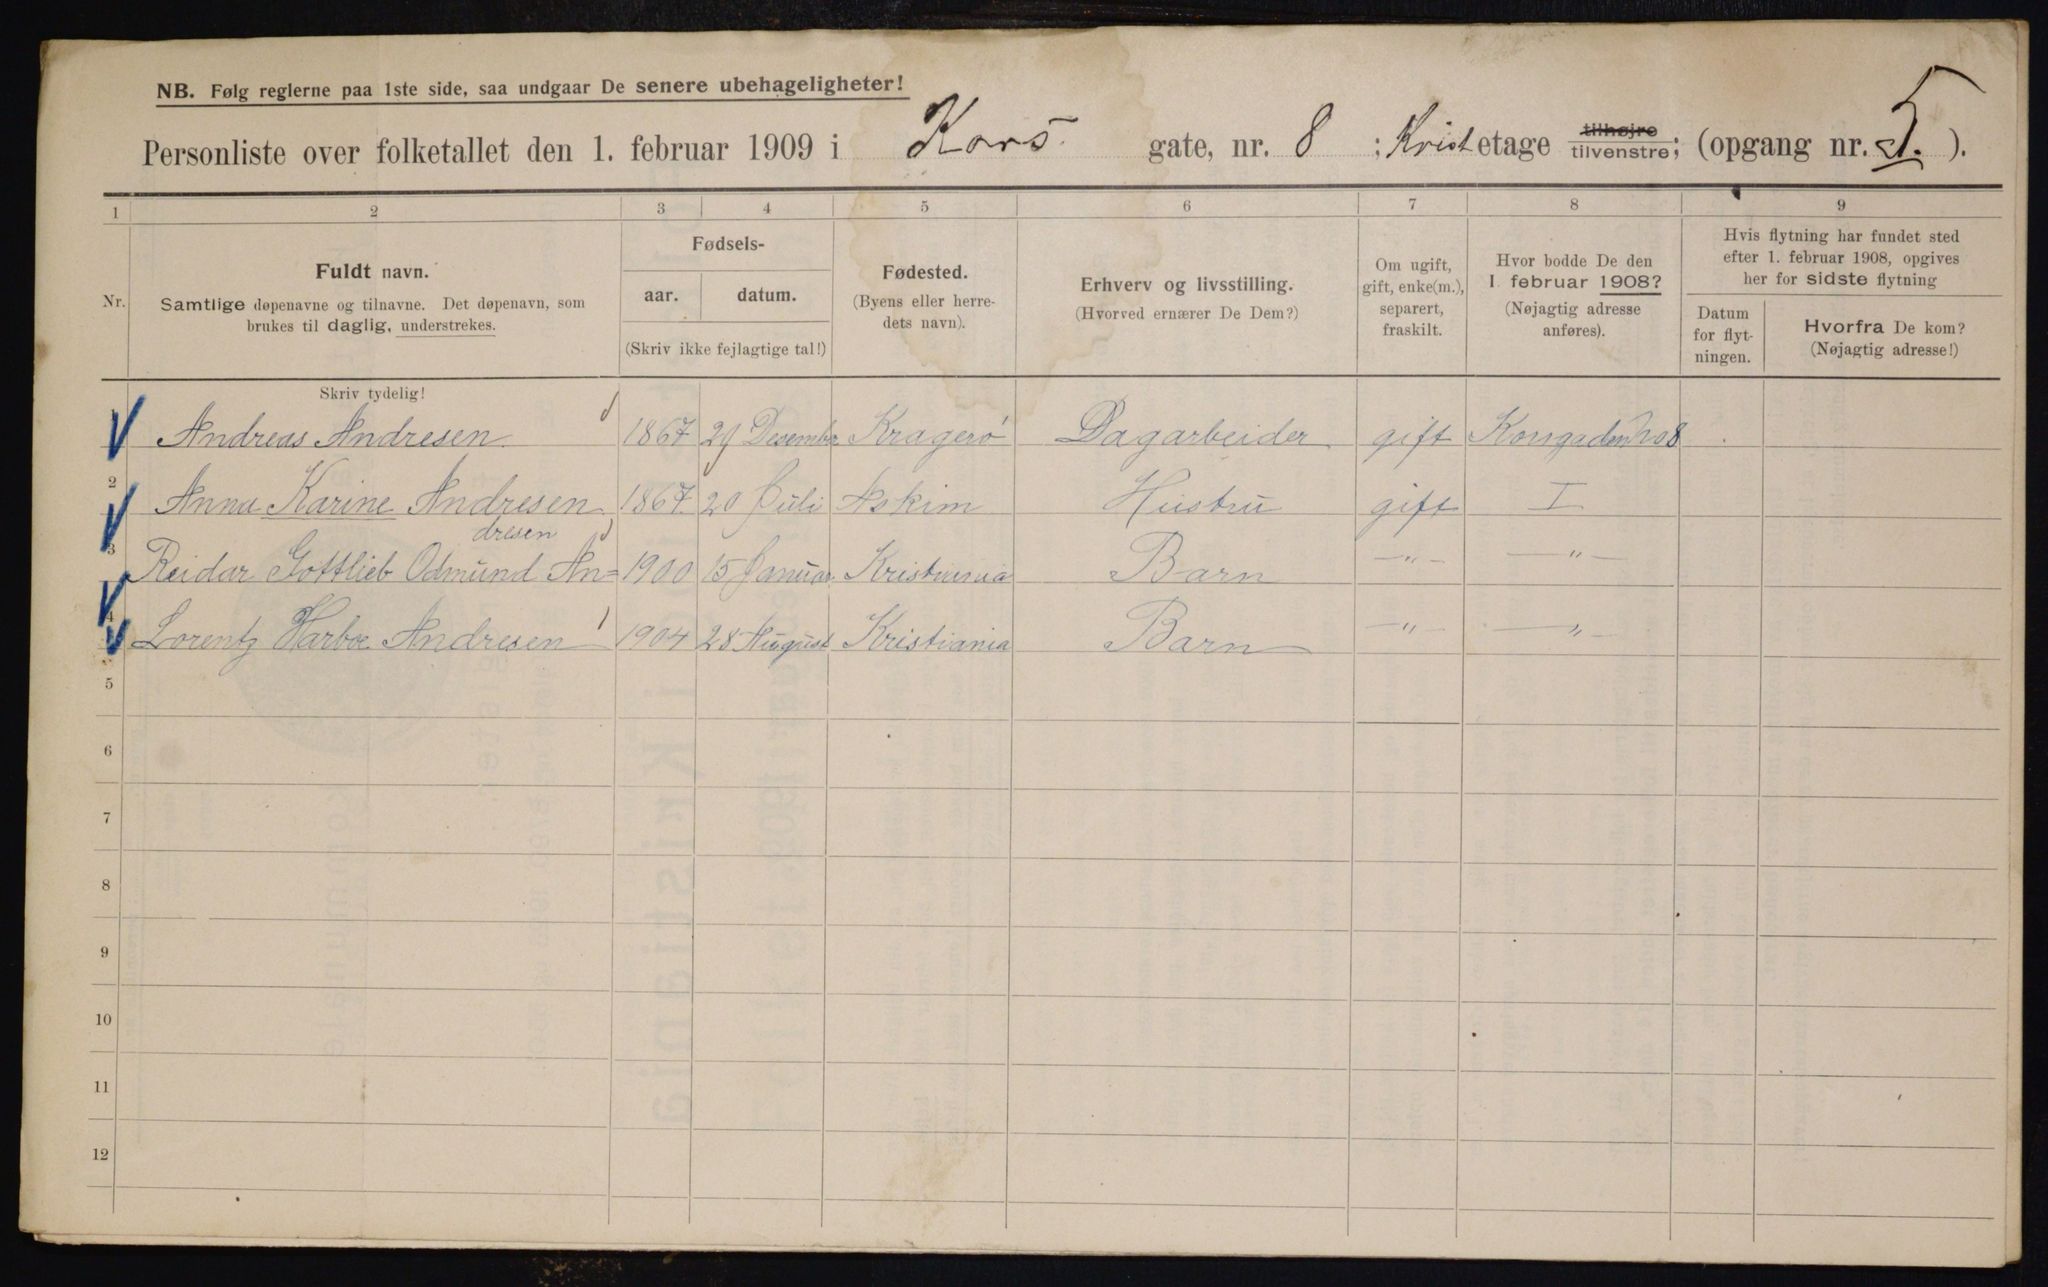 NB. Følg reglerne paa 1ste side, saa undgaar De senere ubehageligheter!
Personliste over folketallet den 1. februar 1909 i Kors gate, nr. 8 ; Kvist etage tilhøjre tilvenstre; (opgang nr. 5. ).
1 2 3 4 5 6 7 8 9
Nr.
Fuldt navn.
Samtlige døpenavne og tilnavne. Det døpenavn, som
brukes til daglig, understrekes.
Fødsels-
aar. datum.
(Skriv ikke fejlagtige tal!)
Fødested.
(Byens eller herre-
dets navn).
Erhverv og livsstilling.
(Hvorved ernærer De Dem?)
Om ugift,
gift, enke(m.),
separert,
fraskilt.
Hvor bodde De den
1. februar 1908?
(Nøjagtig adresse
anføres).
Hvis flytning har fundet sted
efter 1. februar 1908, opgives
her for sidste flytning
Datum
for flyt-
ningen.
Hvorfra De kom?
(Nøjagtig adresse!)
Skriv tydelig!
1 Andreas Andresen 1867 29 Desember Kragerö Dagarbeider gift No 8
2 Anna Karine Andresen 1867 20 Juli Askim Hustru gift I
dresen
3 Reidar Gottlieb Odmund An= 1900 15 Januar Kristiania Barn —"— —"—
4 Lorentz Harboe Andresen 1904 28 August Kristiania Barn —"— —"—
5
6
7
8
9
10
11
12